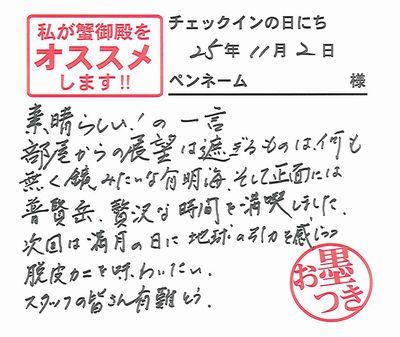 私が蟹御殿を
オススメ
します!!
チェックインの日にち
25年11月2日
ペンネーム 様
素晴らしい!の一言
部屋からの展望は遮ぎるものは何も
無く鏡みたいな有明海、そして正面には
普賢岳、贅沢な時間を満喫しました、
次回は満月の日に地球の引力を感じつつ
脱皮カニを味わいたい、
スタッフの皆さん有難とう、
お墨つき